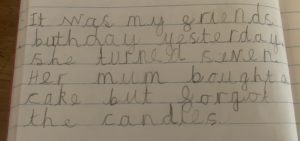 It was my friends
buthday yesterday
she turned seven.
Her mum bought a
cake but forgot
the candles.